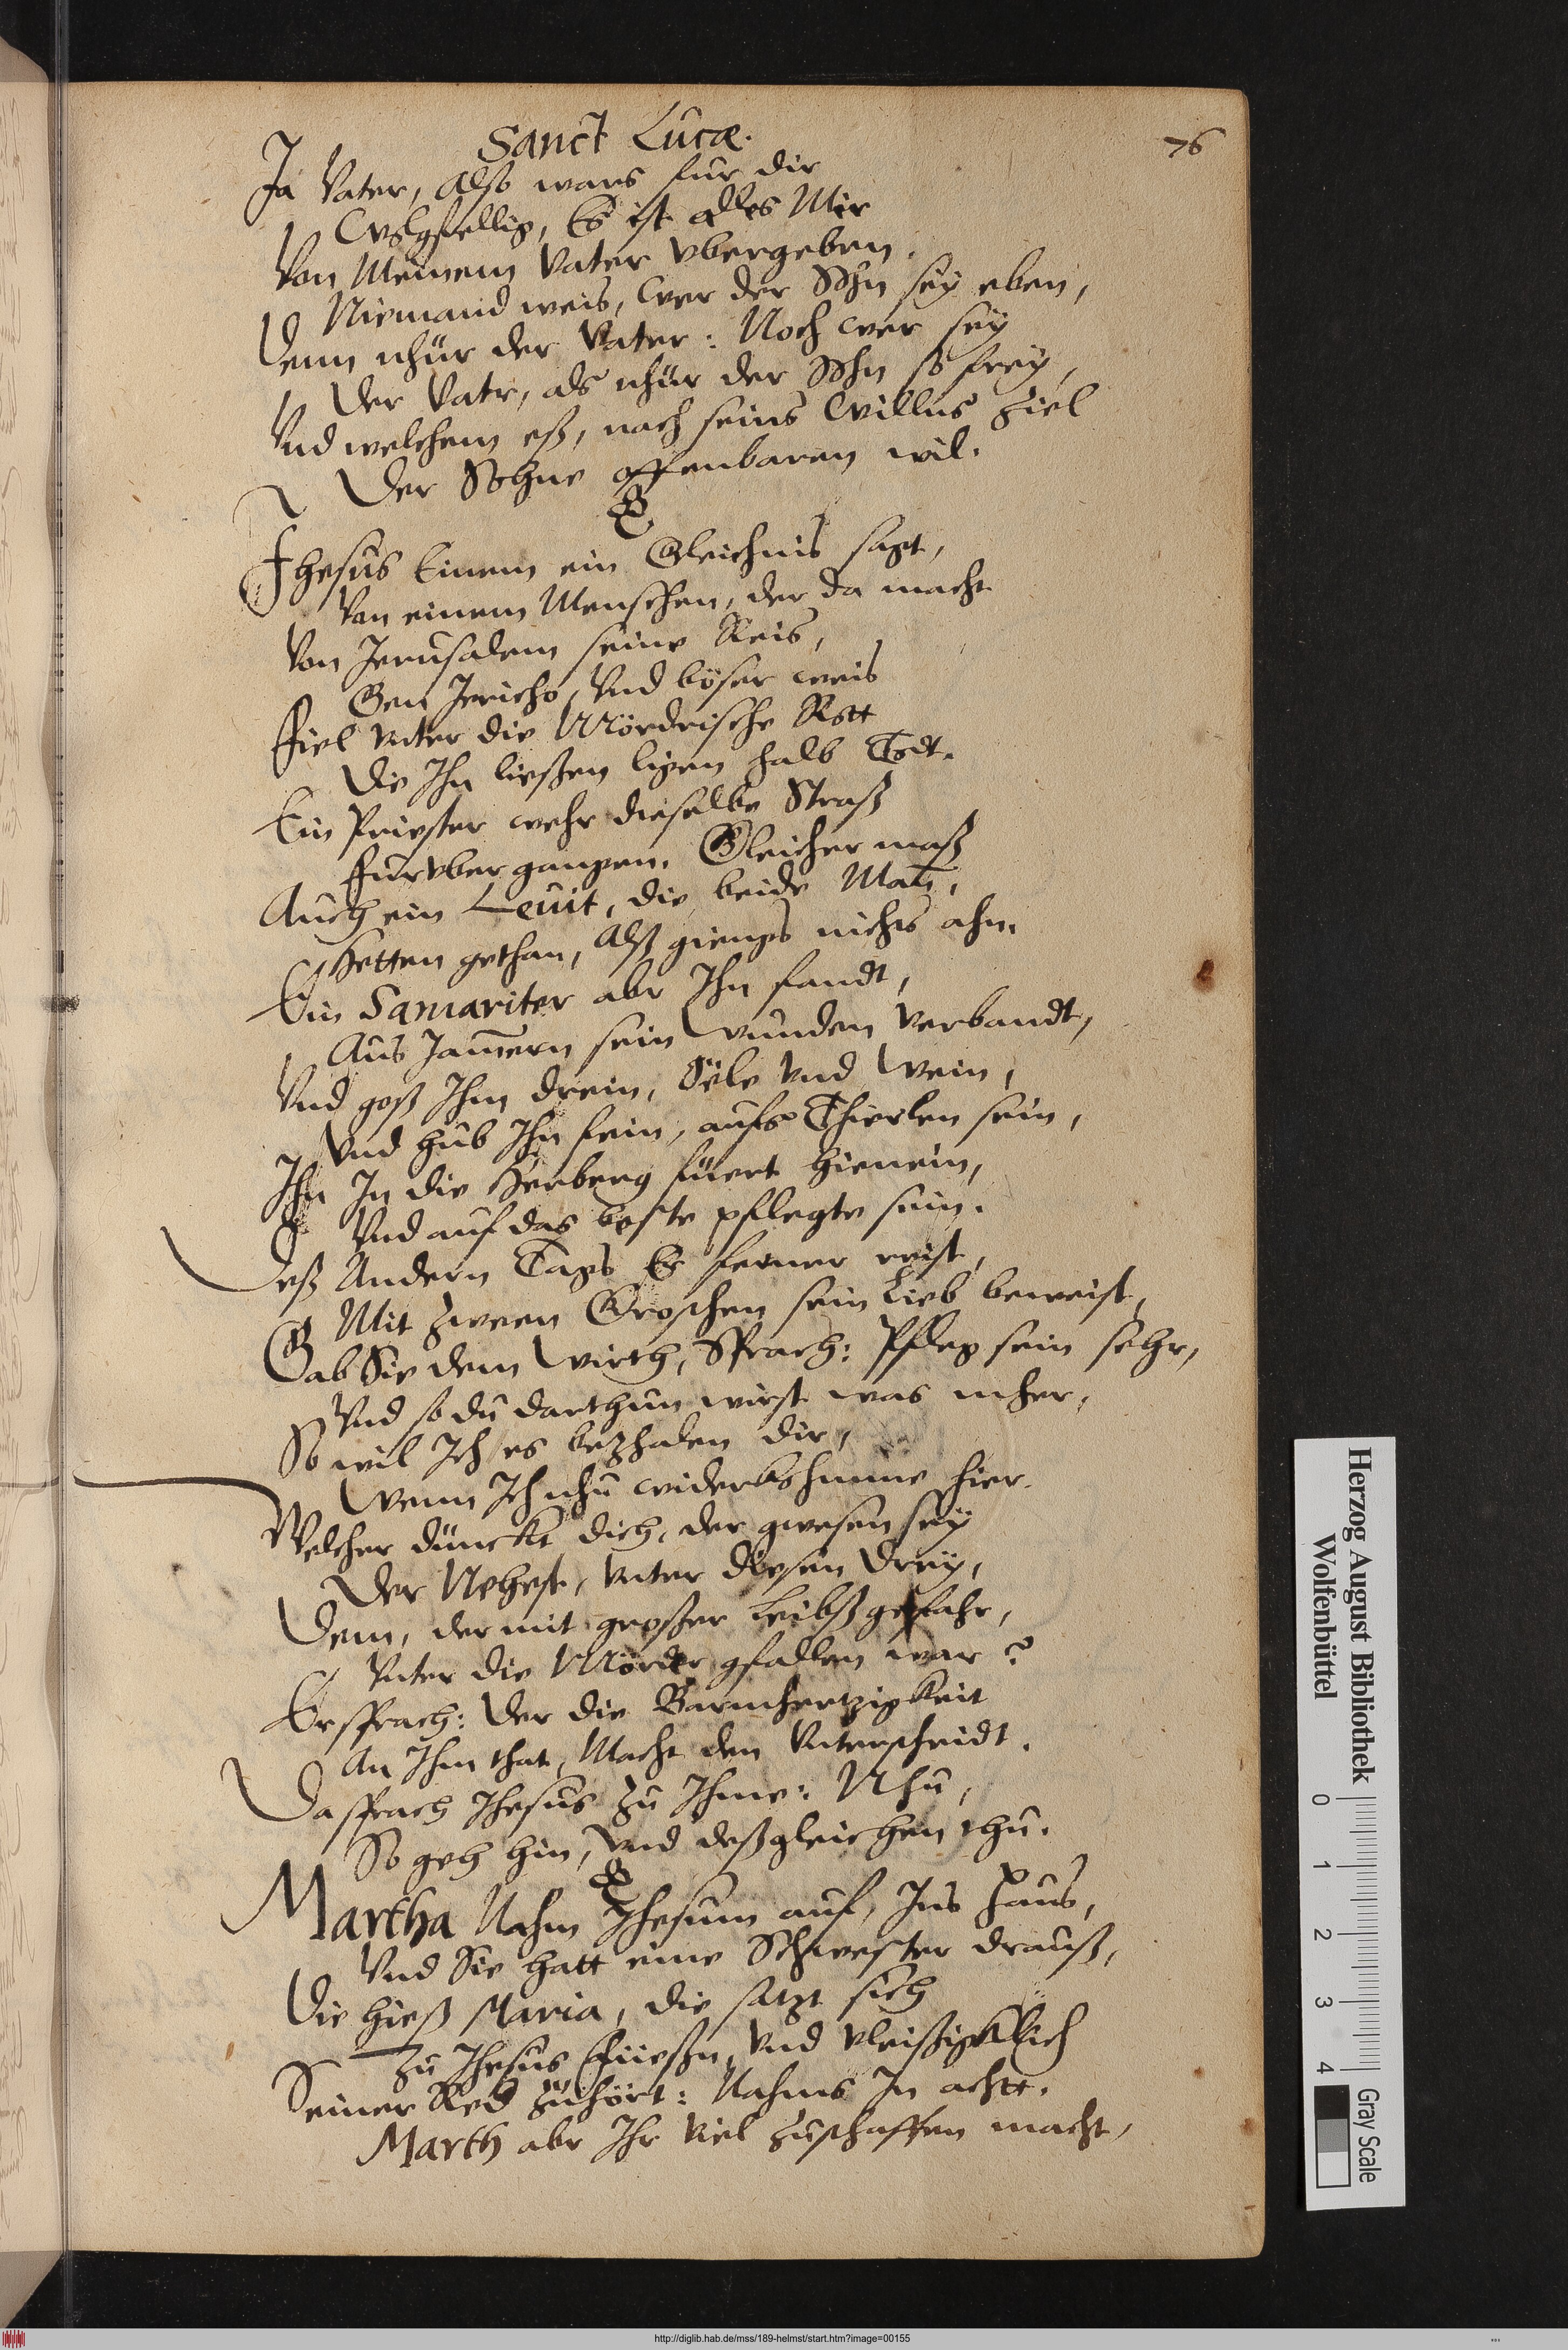 Sanct Lucæ.
76
Ja Vater, Also wars fur dir
Wolgfellig, Es ist alles Mir
Von Meinem Vater vbergeben.
Niemand weis, wer der Sohn sey eben,
Denn nhür der Vater: Noch wer sey
Der Vatr, als nhür der Sohn so frey,
Vnd welchem eß, nach seins Willns Ziel
Der Sohne offenbaren wil.
Jhesus Einem ein Gleichnis sagt,
Von einem Menschen, der da macht
Von Jerusalem seine Reis,
Gen Jericho, Vnd böser weis
Fiel vnter die Mördrische Rott
Die Ihn ließen ligen halb Todt.
Ein Priester wehr dieselbe Straß
furvber gangen. Gleicher maß
Auch ein Leuit, die beide Man̄,
Hetten gethan, Alß giengs nichts ahn.
Ein Samariter abr Ihn fandt,
Aus Jam̄ern sein Wunden verbandt,
Vnd goß Ihm drein, Öele vnd Wein,
Vnd hub Ihn fein, aufs Thierlen sein,
Ihn In die Herberg füert hienein,
Vnd auf das beste pflegte sein.
Deß Andern Tags Er ferner reist,
Mit zween Groschen sein Lieb beweist,
Gab Sie dem Wirth, Sprach: Pfleg sein sehr,
Vnd so du darthun wirst was mher,
So wil Ich es bezhalen dir,
Wenn Ich nhu widerkohmme hier.
Welcher dünckt dich, der gwesen sey
Der Nehest, vnter diesen drey,
Dem, der mit großer Leibßgefahr,
Vnter die Mörder gfallen war?
Er sprach: Der die Barmhertzigkeit
An Ihm that, Macht den Vnterscheidt.
Da sprach Jhesus zu Ihme: Nhu,
So geh hin, Vnd deßgleichen thu.
Martha Nahm Jhesum auf, Ins Haus,
Vnd Sie hatt eine Schwester drauß,
Die hieß Maria, die satzt sich
Zu Jhesus Füeßn, Vnd vleißigklich
Seiner Red zuhört: Nahms In achtt.
Marth abr Ihr viel zuschaffen macht,
Herzog August Bibliothek
Wolfenbüttel
0 1 2 3 4
Gray Scale
http://diglib.hab.de/mss/189-helmst/start.htm?image=00155